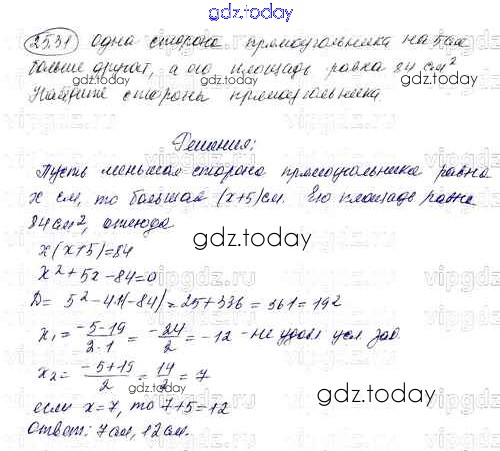 gdz.today
25.31 Одна сторона прямоугольника на 5 см
больше другой, а его площадь равна 84 см²
Найдите стороны прямоугольника.
gdz.today
gdz.today
Решения:
Пусть меньшая сторона прямоугольника равна
х см, то большая (х+5)см. Его площадь равна
84 см², отсюда
gdz.today
x(x+5)=84
x²+5x-84=0
D= 5²-4·1(-84)=25+336=361=19²
x₁=\frac{-5-19}{2·1}=\frac{-24}{2}=-12 -не удовл усл. зад.
x₂=\frac{-5+19}{2}=\frac{14}{2}=7
gdz.today
gdz.today
если x=7, то 7+5=12
Ответ: 7см, 12см.
gdz.today